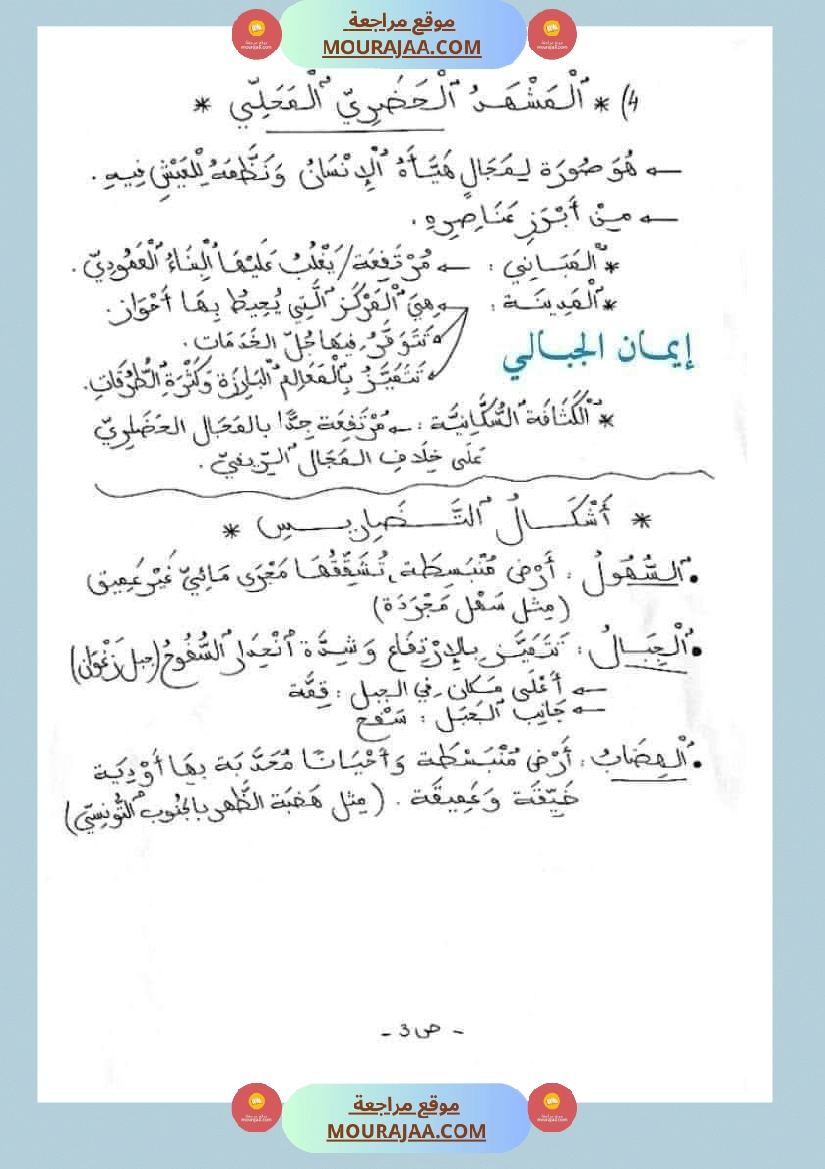 موقع مراجعة
MOURAJAA.COM
4) * الْمَشْهَدُ الْحَضَرِيّ الْمَحَلِّي *
← هُوَ صُورَة لِمَجَالٍ هَيَّأَهُ الْإِنْسَانُ وَنَظَّمَهُ لِلْعَيْشِ فِيهِ.
← مِنْ أَبْرَزِ عَنَاصِرِهِ.
* الْمَبَانِي : ← مُرْتَفِعَة/ يَغْلُبُ عَلَيْهَا الْبِنَاءُ الْعَمُودِيّ.
* الْمَدِينَة : ← هِيَ الْمَرْكَز الَّتِي يُحِيطُ بِهَا أَحْوَاز.
← تَتَوَفَّرُ فِيهَا جُلّ الخَدَمَات.
إيمان الجبالي
← تَتَمَيَّزُ بِالْمَعَالِمِ الْبَارِزَة وَكَثْرَةِ الطُّرُقَاتِ.
* الْكَثَافَة السُّكَّانِيَّة : ← مُرْتَفِعَة جِدًّا بالمَجَال الحَضَرِيّ
عَلَى خِلَافِ المَجَال الرِّيفِيّ.
* أَشْكَالُ التَّضَارِيسِ *
• السُّهُولُ : أَرْضٌ مُنْبَسِطَة، تُشَقِّقُهَا مَجْرَى مَائِيّ غَيْر عَمِيق
(مِثل سَهْل مَجْرَدَة)
• الْجِبَالُ : تَتَمَيَّز بِالْإِرْتِفَاع وَشِدَّة انْحِدَار السُّفُوحُ (جبل زَغْوَان)
← أَعْلَى مَكَان فِي الجبل : قِمَّة
← جَانِب الجَبَل : سَفْح
• الْهِضَابُ : أَرْضٌ مُنْبَسْطَة وَأَحْيَانًا مُحَدَّبَة بِهَا أَوْدِيَة
ضَيِّقَة وَعَمِيقَة. (مِثل هَضَبَة الظَّهر بالجُنُوب التُّونِسِيّ)
- ص 3 -
موقع مراجعة
MOURAJAA.COM